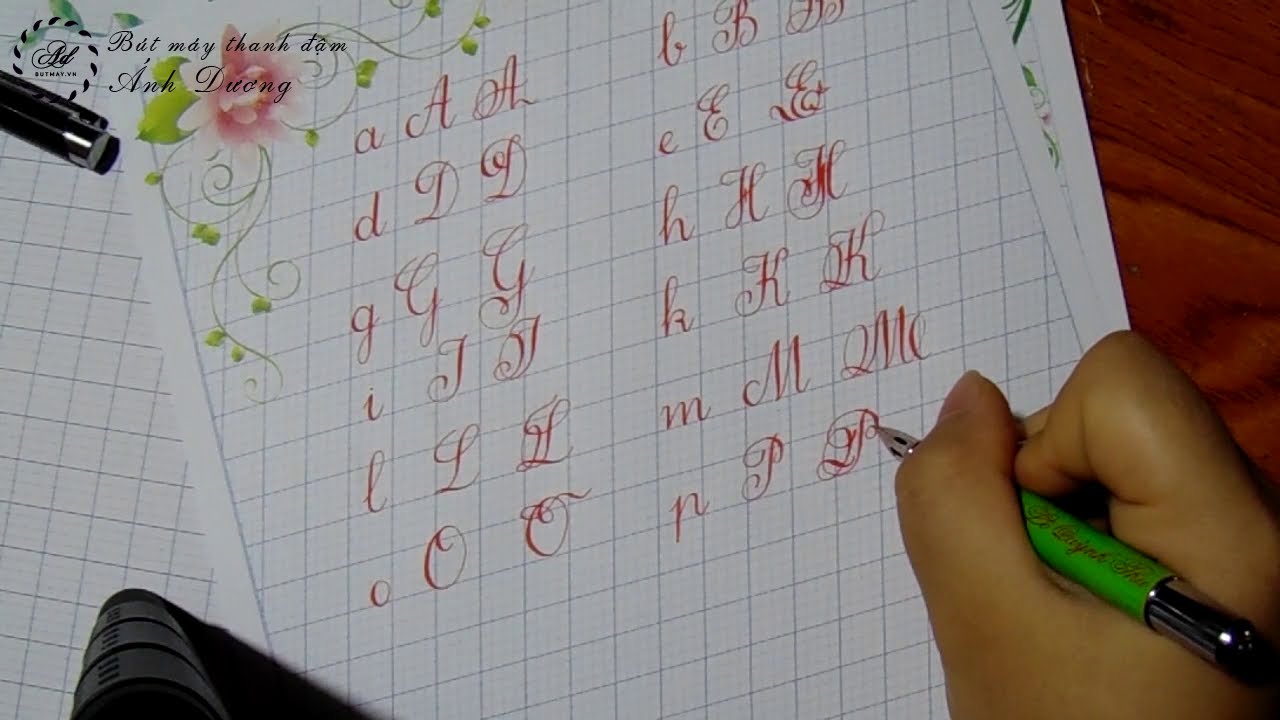 Bút máy thanh đậm
Ánh Dương
Ad
BUTMAY.VN
a A A
b B B
d D D
e E E
g G G
h H H
i I I
k K K
l L L
m M M
o O O
p P P